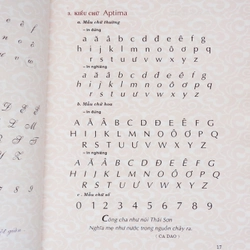 2. KIỂU CHỮ Aptima
a. Mẫu chữ thường
– In đứng
a ă â b c d đ e ê f g
h i j k l m n o ô ơ p q
r s t u ư v w x y z
– In nghiêng
a ă â b c d đ e ê f g
h i j k l m n o ô ơ p q
r s t u ư v w x y z
b. Mẫu chữ hoa
– In đứng
A Ă Â B C D Đ E Ê F G
H I J K L M N O Ô Ơ P Q
R S T U Ư V W X Y Z
– In nghiêng
A Ă Â B C D Đ E Ê F G
H I J K L M N O Ô Ơ P Q
R S T U Ư V W X Y Z
c. Mẫu chữ số
0 1 2 3 4 5 6 7 8 9
Công cha như núi Thái Sơn
Nghĩa mẹ như nước trong nguồn chảy ra.
( CA DAO )